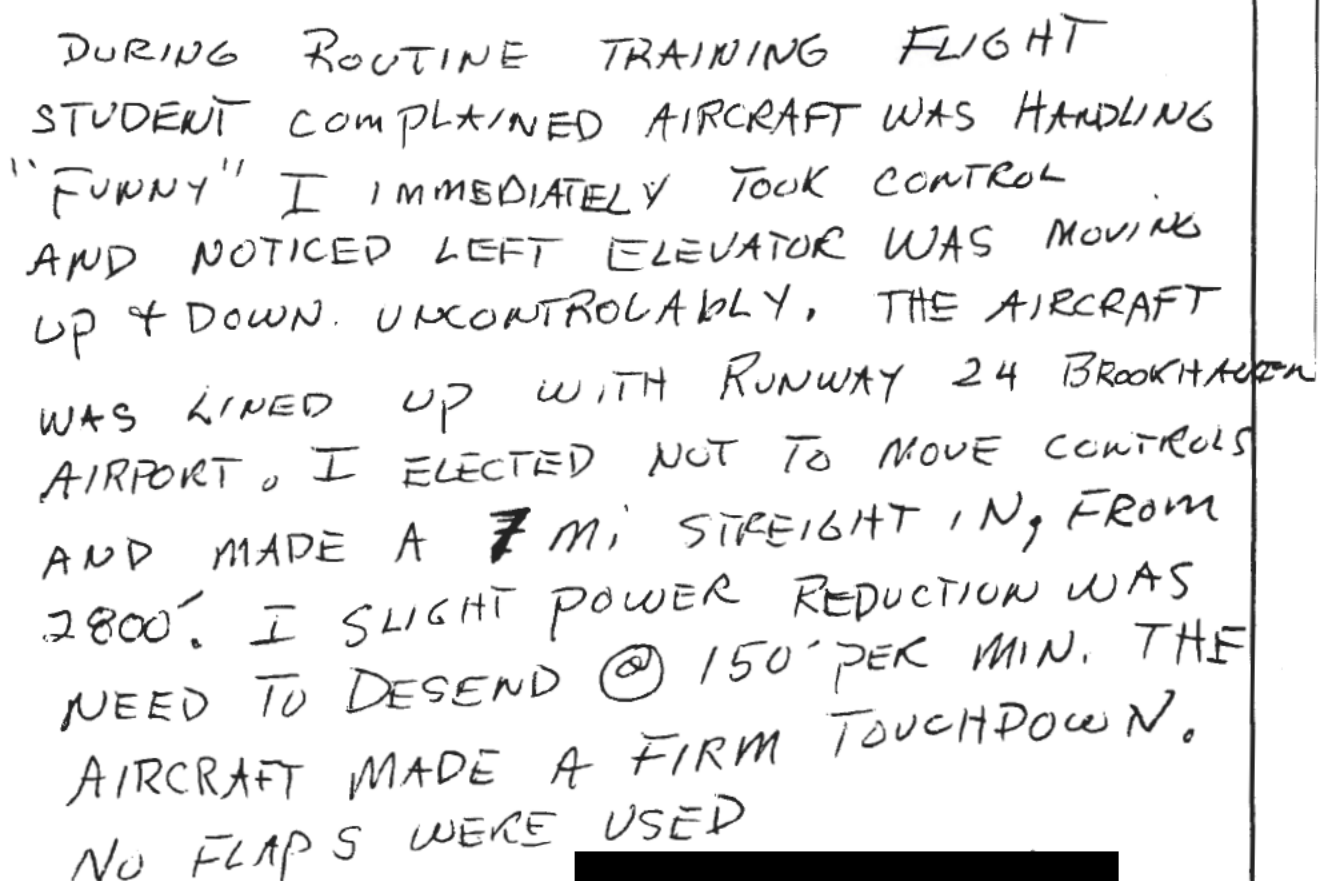 DURING ROUTINE TRAINING FLIGHT
STUDENT COMPLAINED AIRCRAFT WAS HANDLING
"FUNNY" I IMMEDIATELY TOOK CONTROL
AND NOTICED LEFT ELEVATOR WAS MOVING
UP & DOWN. UNCONTROLABLY. THE AIRCRAFT
WAS LINED UP WITH RUNWAY 24 BROOKHAVEN
AIRPORT. I ELECTED NOT TO MOVE CONTROLS
AND MADE A 7 Mi STREIGHT IN, FROM
2800'. I SLIGHT POWER REDUCTION WAS
NEED TO DESEND @ 150' PER MIN. THE
AIRCRAFT MADE A FIRM TOUCHDOWN.
NO FLAPS WERE USED